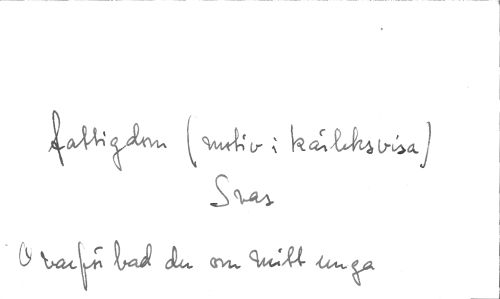 fattigdom (motiv i kärleksvisa)
Svas
O varför bad du om mitt unga